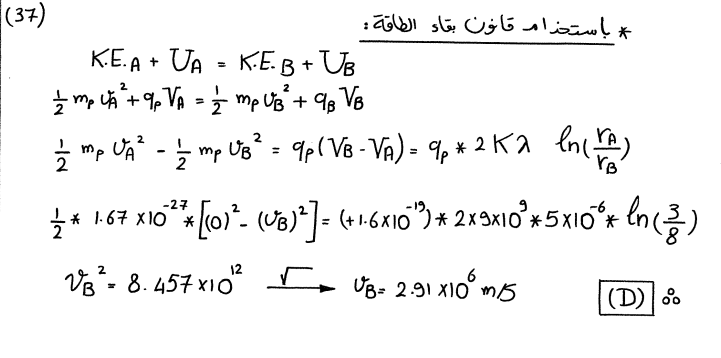 (37)
* بإستخدام قانون بقاء الطاقة :
K.E.A + UA = K.E.B + UB
½ mp υA² + qp VA = ½ mp υB² + qB VB
½ mp υA² - ½ mp υB² = qp (VB - VA) = qp * 2 K λ ln(rA/rB)
½ * 1.67 x10⁻²⁷ * [(0)² - (υB)²] = (+1.6x10⁻¹⁹) * 2x9x10⁹ * 5x10⁻⁶ * ln(3/8)
υB² = 8.457 x10¹² √ → υB = 2.91 x10⁶ m/s (D) ∴